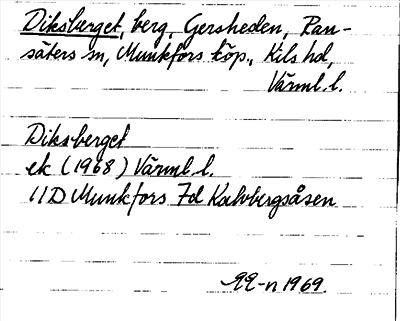 Diksberget, berg, Gersheden, Ran-
säters sn, Munkfors köp., Kils hd,
Värml. l.
Diksberget
ek (1968) Värml. l.
11D Munkfors 7d Kalvbergsåsen
-n 1969.